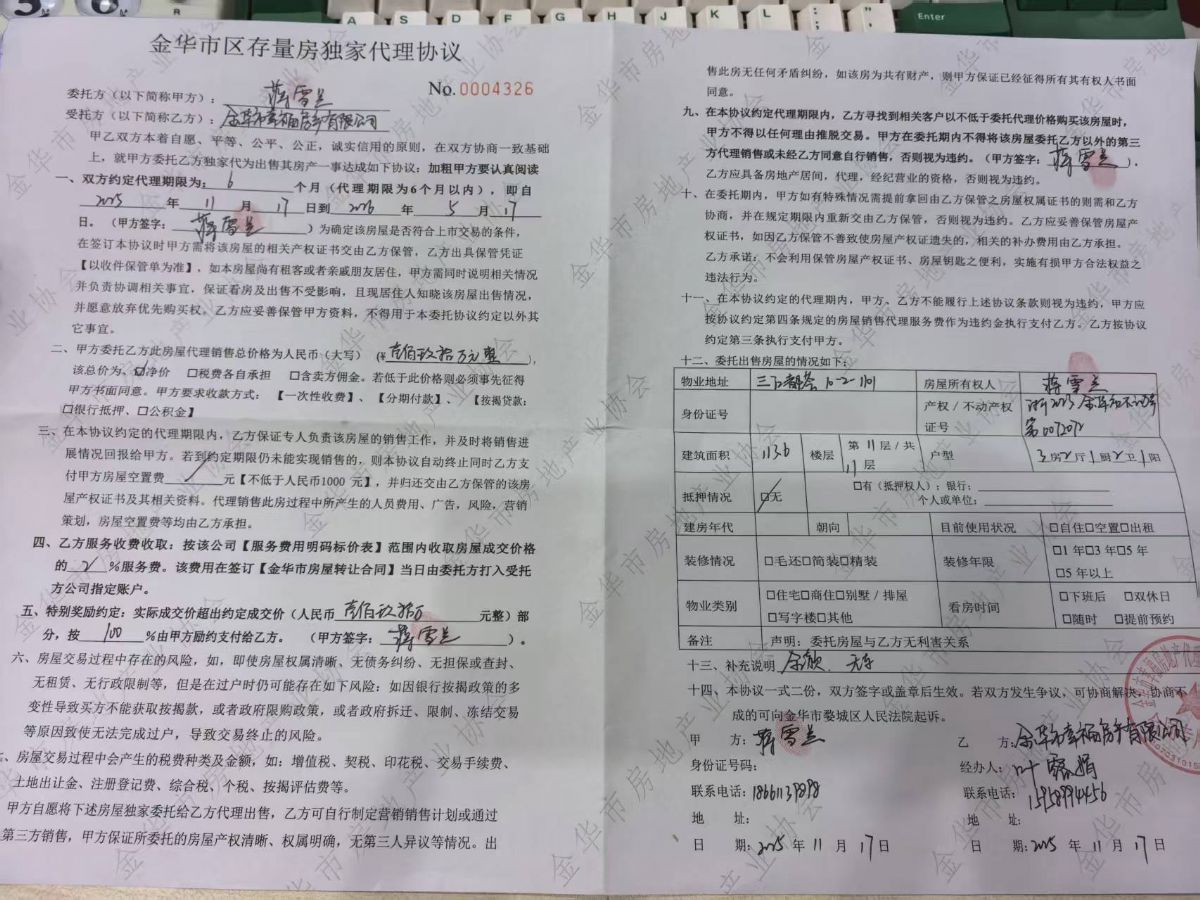 金华市区存量房独家代理协议
No.0004326
委托方（以下简称甲方）：蒋雪兰
受托方（以下简称乙方）：金华市幸福房产有限公司
甲乙双方本着自愿、平等、公平、公正，诚实信用的原则，在双方协商一致基础
上，就甲方委托乙方独家代为出售其房产一事达成如下协议：加粗甲方要认真阅读
一、双方约定代理期限为：6个月（代理期限为6个月以内），即自
2025年11月17日到2026年5月17
日。（甲方签字：蒋雪兰）为确定该房屋是否符合上市交易的条件，
在签订本协议时甲方需将该房屋的相关产权证书交由乙方保管，乙方出具保管凭证
【以收件保管单为准】，如本房屋尚有租客或者亲戚朋友居住，甲方需同时说明相关情况
并负责协调相关事宜，保证看房及出售不受影响，且现居住人知晓该房屋出售情况，
并愿意放弃优先购买权。乙方应妥善保管甲方资料，不得用于本委托协议约定以外其
它事宜。
二、甲方委托乙方此房屋代理销售总价格为人民币（大写）（¥壹佰玖拾万元整），
该总价为、☑净价 □税费各自承担 □含卖方佣金。若低于此价格则必须事先征得
甲方书面同意。甲方要求收款方式：【一次性收费】、【分期付款】、【按揭贷款：
□银行抵押、□公积金】
三、在本协议约定的代理期限内，乙方保证专人负责该房屋的销售工作，并及时将销售进
展情况回报给甲方。若到约定期限仍未能实现销售的，则本协议自动终止同时乙方支
付甲方房屋空置费／元【不低于人民币1000 元】，并归还交由乙方保管的该房
屋产权证书及其相关资料。代理销售此房过程中所产生的人员费用、广告，风险，营销
策划，房屋空置费等均由乙方承担。
四、乙方服务收费收取：按该公司【服务费用明码标价表】范围内收取房屋成交价格
的2%服务费。该费用在签订【金华市房屋转让合同】当日由委托方打入受托
方公司指定账户。
五、特别奖励约定：实际成交价超出约定成交价（人民币壹佰玖拾万元整）部
分，按100%由甲方励约支付给乙方。（甲方签字：蒋雪兰）。
六、房屋交易过程中存在的风险，如，即使房屋权属清晰、无债务纠纷、无担保或查封、
无租赁、无行政限制等，但是在过户时仍可能存在如下风险：如因银行按揭政策的多
变性导致买方不能获取按揭款，或者政府限购政策，或者政府拆迁、限制、冻结交易
等原因致使无法完成过户，导致交易终止的风险。
、房屋交易过程中会产生的税费种类及金额，如：增值税、契税、印花税、交易手续费、
土地出让金、注册登记费、综合税、个税、按揭评估费等。
甲方自愿将下述房屋独家委托给乙方代理出售，乙方可自行制定营销销售计划或通过
第三方销售，甲方保证所委托的房屋产权清晰、权属明确，无第三人异议等情况。出
售此房无任何矛盾纠纷，如该房为共有财产，则甲方保证已经征得所有其有权人书面
同意。
九、在本协议约定代理期限内，乙方寻找到相关客户以不低于委托代理价格购买该房屋时，
甲方不得以任何理由推脱交易。甲方在委托期内不得将该房屋委托乙方以外的第三
方代理销售或未经乙方同意自行销售，否则视为违约。（甲方签字：蒋雪兰），
乙方应具备房地产居间，代理，经纪营业的资格，否则视为违约。
十、在委托期内，甲方如有特殊情况需提前拿回由乙方保管之房屋权属证书的则需和乙方
协商，并在规定期限内重新交由乙方保管，否则视为违约。乙方应妥善保管房屋产
权证书，如因乙方保管不善致使房屋产权证遗失的，相关的补办费用由乙方承担。
乙方承诺：不会利用保管房屋产权证书、房屋钥匙之便利，实施有损甲方合法权益之
违法行为。
十一、在本协议约定的代理期内，甲方、乙方不能履行上述协议条款则视为违约，甲方应
按协议约定第四条规定的房屋销售代理服务费作为违约金执行支付乙方。乙方按协议
约定第三条执行支付甲方。
十二、委托出售房屋的情况如下：
物业地址 10-2-1101 房屋所有权人 蒋雪兰
身份证号 产权 / 不动产权 证号
第0072072
建筑面积 113.6 楼层 第 11 层 / 共 11 层 户型 3房2厅1厨2卫1阳
抵押情况 ☑无 □有（抵押权人）：银行：
个人或单位：
建房年代 朝向 目前使用状况 □自住□空置□出租
装修情况 □毛还□简装□精装 装修年限 □1 年□3 年□5 年
□5 年以上
物业类别 □住宅□商住□别墅 / 排屋
□写字楼□其他
看房时间 □下班后 □双休日
□随时 □提前预约
备注 声明：委托房屋与乙方无利害关系
十三、补充说明
十四、本协议一式二份，双方签字或盖章后生效。若双方发生争议，可协商解决，协商不
成的可向金华市婺城区人民法院起诉。
甲 方：蒋雪兰
乙 方：金华市幸福房产有限公司
身份证号码：
经办人：
联系电话：
联系电话：
地 址：
地 址：
日 期：2025年11月17日
日 期：2025年11月17日
金华市房地产业协会
Enter